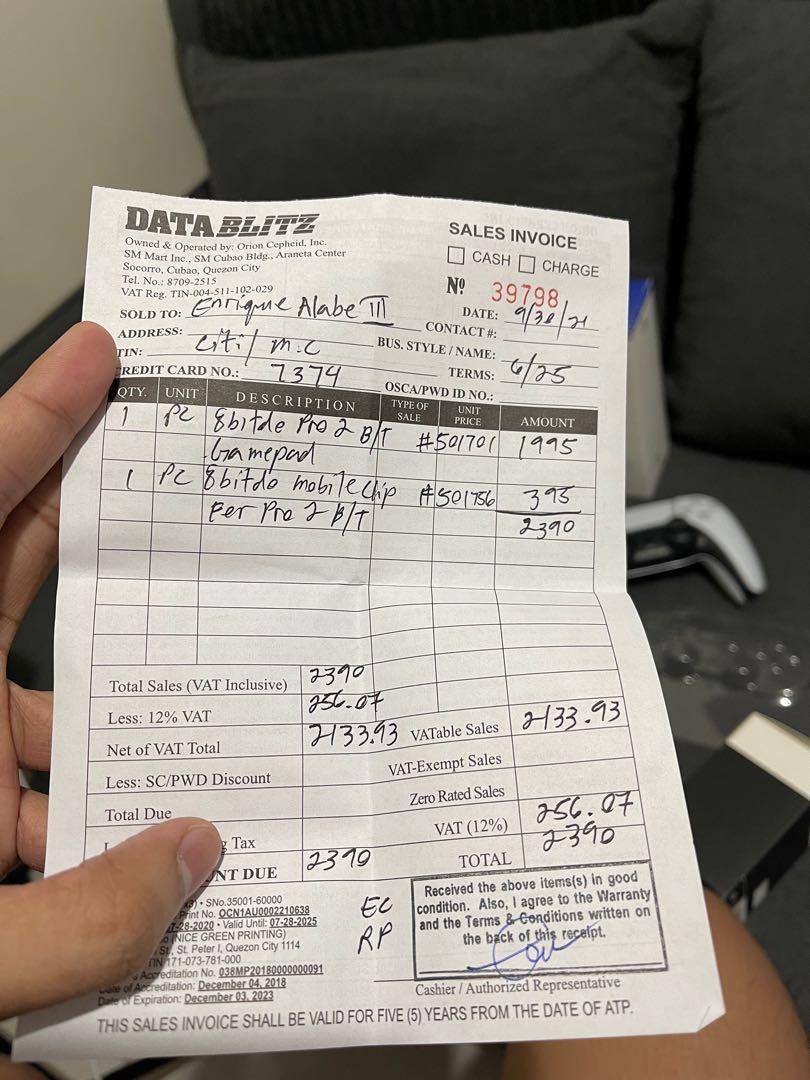 DATA BLITZ
Owned & Operated by: Orion Cepheid, Inc.
SM Mart Inc., SM Cubao Bldg., Araneta Center
Socorro, Cubao, Quezon City
Tel. No.: 8709-2515
VAT Reg. TIN-004-511-102-029
SALES INVOICE
CASH CHARGE
Nº 39798
SOLD TO: Enrique Alabe III
DATE: 9/30/21
CONTACT #:
ADDRESS:
BUS. STYLE / NAME:
TIN: Citi/ m.c
TERMS: 6/25
REDIT CARD NO.: 7374
OSCA/PWD ID NO.:
QTY. UNIT DESCRIPTION TYPE OF SALE UNIT PRICE AMOUNT
1 PC 8bitdo Pro 2 B/T #501701 1995
Gamepad
1 PC 8bitdo mobile Clip #501756 395
For Pro 2 B/T 2390
Total Sales (VAT Inclusive) 2390
Less: 12% VAT 256.07
Net of VAT Total 2133.93 VATable Sales 2133.93
Less: SC/PWD Discount VAT-Exempt Sales
Total Due Zero Rated Sales
g Tax VAT (12%) 256.07
NT DUE 2390 TOTAL 2390
• SNo.35001-60000
Print No. OCN1AU0002210638
7-28-2020 • Valid Until: 07-28-2025
(NICE GREEN PRINTING)
St., St. Peter I, Quezon City 1114
TIN 171-073-781-000
Accreditation No. 038MP20180000000091
Date of Accreditation: December 04, 2018
Date of Expiration: December 03, 2023
EC
RP
Received the above items(s) in good
condition. Also, I agree to the Warranty
and the Terms & Conditions written on
the back of this receipt.
Cashier / Authorized Representative
THIS SALES INVOICE SHALL BE VALID FOR FIVE (5) YEARS FROM THE DATE OF ATP.